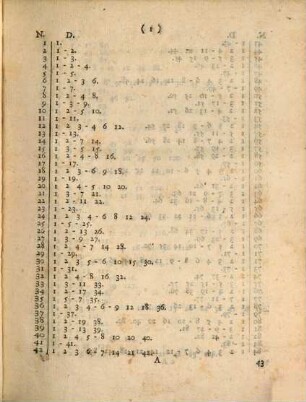 ( 1 )
N. D.
1 1.
2 1 - 2.
3 1 - 3.
4 1 - 2 - 4.
5 1 - 5.
6 1 - 2 3 6.
7 1 - 7.
8 1 - 2 - 4 8.
9 1 - 3 - 9.
10 1 - 2 - 5 10.
11 1 - 11.
12 1 2 3 4 6 12.
13 1 - 13.
14 1 2 - 7 14.
15 1 - 3 - 5 15.
16 1 2 - 4 - 8 16.
17 1 - 17.
18 1 2 3 - 6 9 18.
19 1 - 19.
20 1 2 4 - 5 10 20.
21 1 3 - 7 21.
22 1 2 - 11 22.
23 1 - 23.
24 1 2 3 4 6 8 12 24.
25 1 - 5 - 25.
26 1 2 - 13 26.
27 1 3 - 9 - 27.
28 1 2 4 - 7 14 28.
29 1 - 29.
30 1 2 3 5 - 6 10 15 30.
31 1 - 31.
32 1 2 4 - 8 16 32.
33 1 3 - 11 33.
34 1 2 - 17 34.
35 1 5 - 7 35.
36 1 2 3 4 - 6 - 9 12 18 36.
37 1 - 37.
38 1 2 - 19 38.
39 1 3 - 13 39.
40 1 2 4 5 8 10 20 40.
41 1 - 41.
42 1 2 3 6 7 14 21 42.
A 43